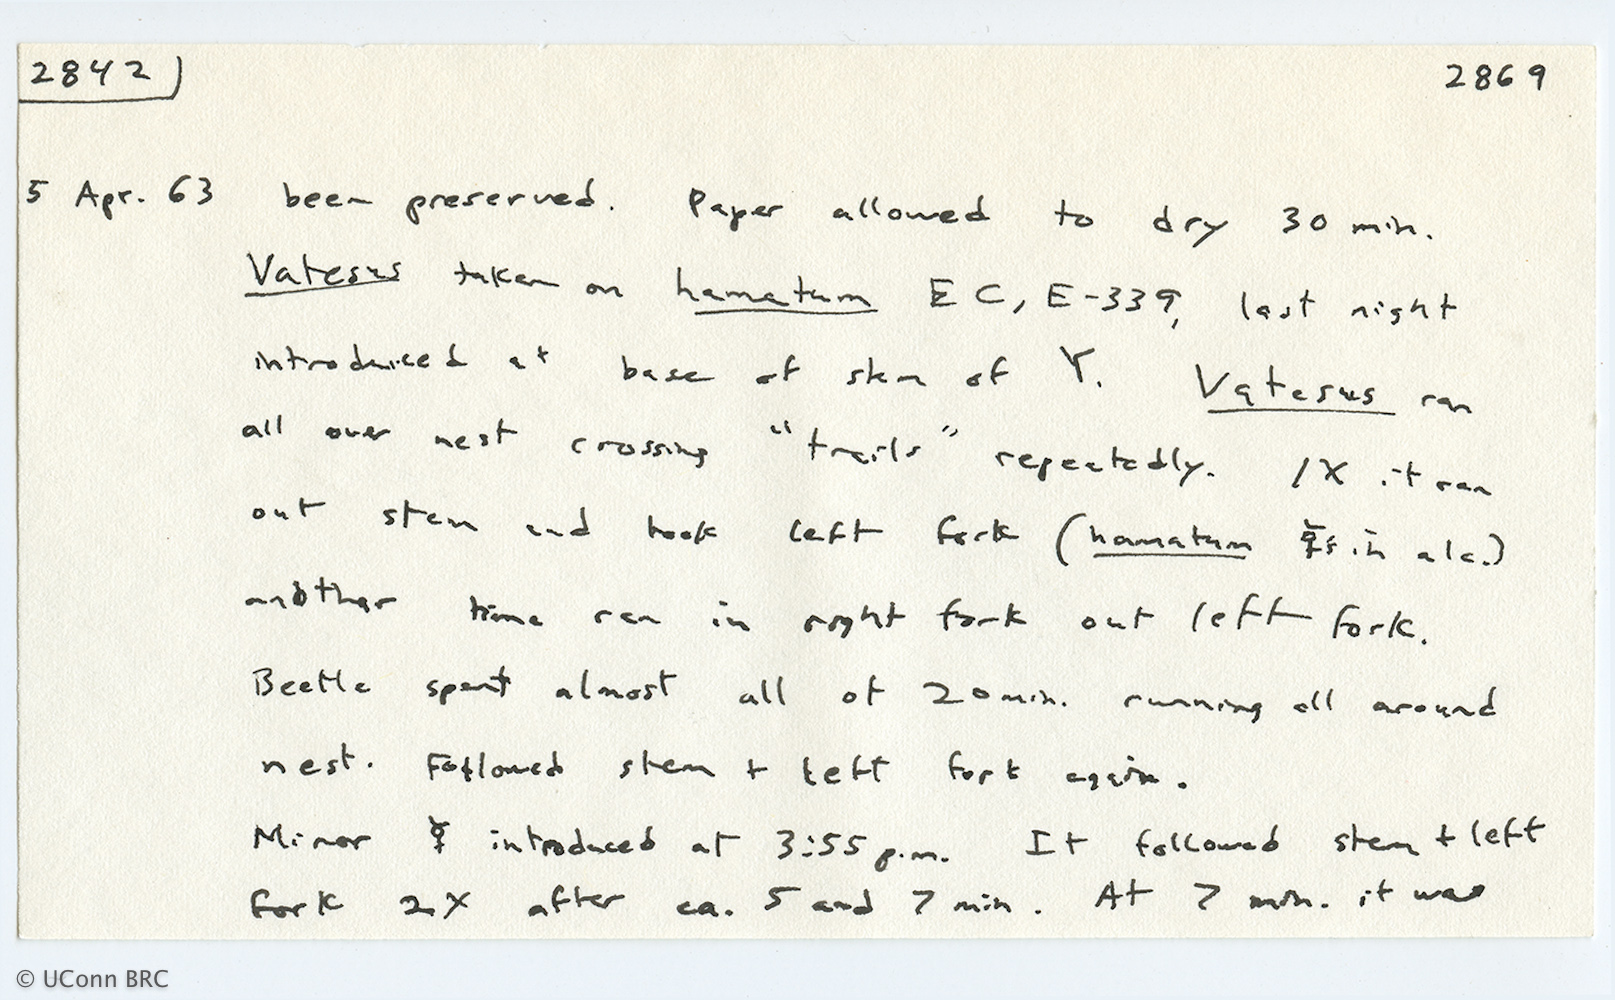 2842 2869
5 Apr. 63 been preserved. Paper allowed to dry 30 min.
Vatesus taken on hamatum EC, E-339, last night
introduced at base of stem of Y. Vatesus ran
all over nest crossing "trails" repeatedly. 1X it ran
out stem and took left fork (hamatum ☿s in alc.)
another time ran in right fork out left fork.
Beetle spent almost all of 20 min. running all around
nest. Followed stem + left fork again.
Minor ☿ introduced at 3:55 p.m. It followed stem + left
fork 2X after ca. 5 and 7 min. At 7 min. it was
© UConn BRC